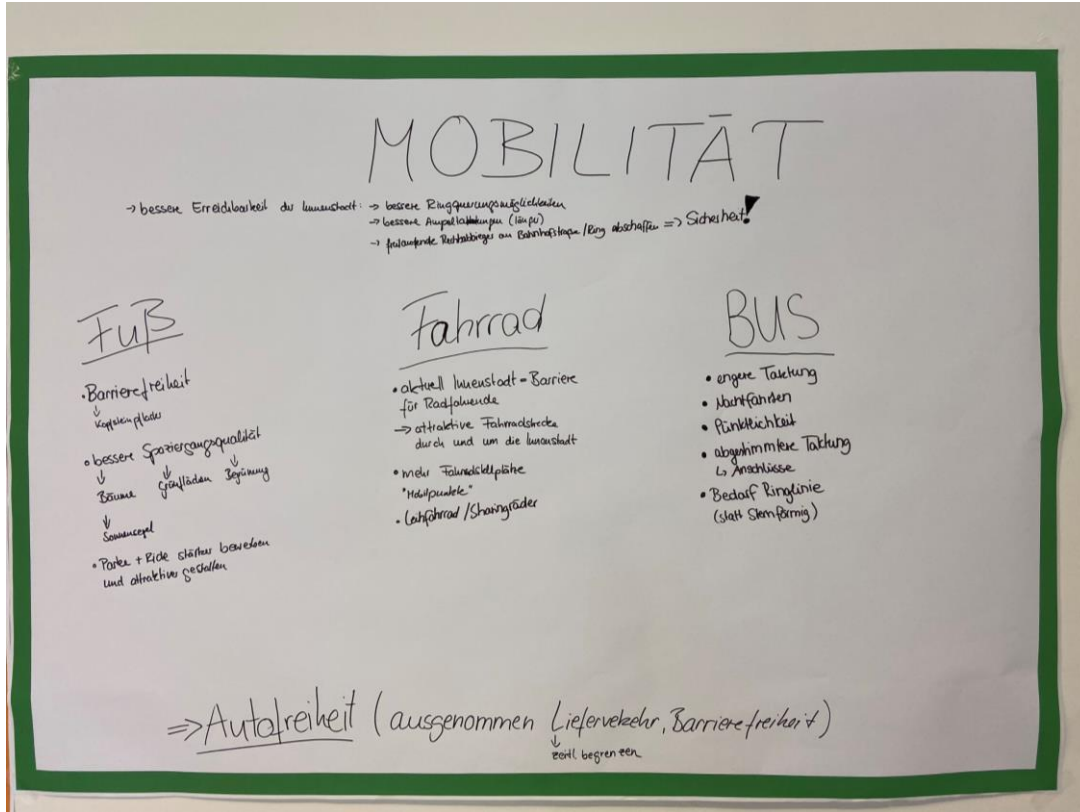 MOBILITÄT
→ bessere Erreichbarkeit der Innenstadt: → bessere Ringquerungsmöglichkeiten
→ bessere (länger)
→ freilaufende Rechtsabbieger an Bahnhofstraße/Ring abschaffen => Sicherheit!
Fuß
• Barrierefreiheit
↓
Kopfsteinpflaster
• bessere Spaziergangsqualität
↓ ↓ ↓
Bäume Grünflächen Begrünung
↓
Sonnensegel
• Parke + Ride stärker bewerben
und attraktiver gestalten
Fahrrad
• aktuell Innenstadt = Barriere
für Radfahrende
→ attraktive Fahrradstrecke
durch und um die Innenstadt
• mehr Fahrradstellplätze
"Mobilpunkte"
• Leihfahrrad / Sharingräder
BUS
• engere Taktung
• Nachtfahrten
• Pünktlichkeit
• abgestimmtere Taktung
↳ Anschlüsse
• Bedarf Ringlinie
(statt Sternförmig)
=> Autofreiheit (ausgenommen Lieferverkehr, Barrierefreiheit)
↓
zeitl. begrenzen